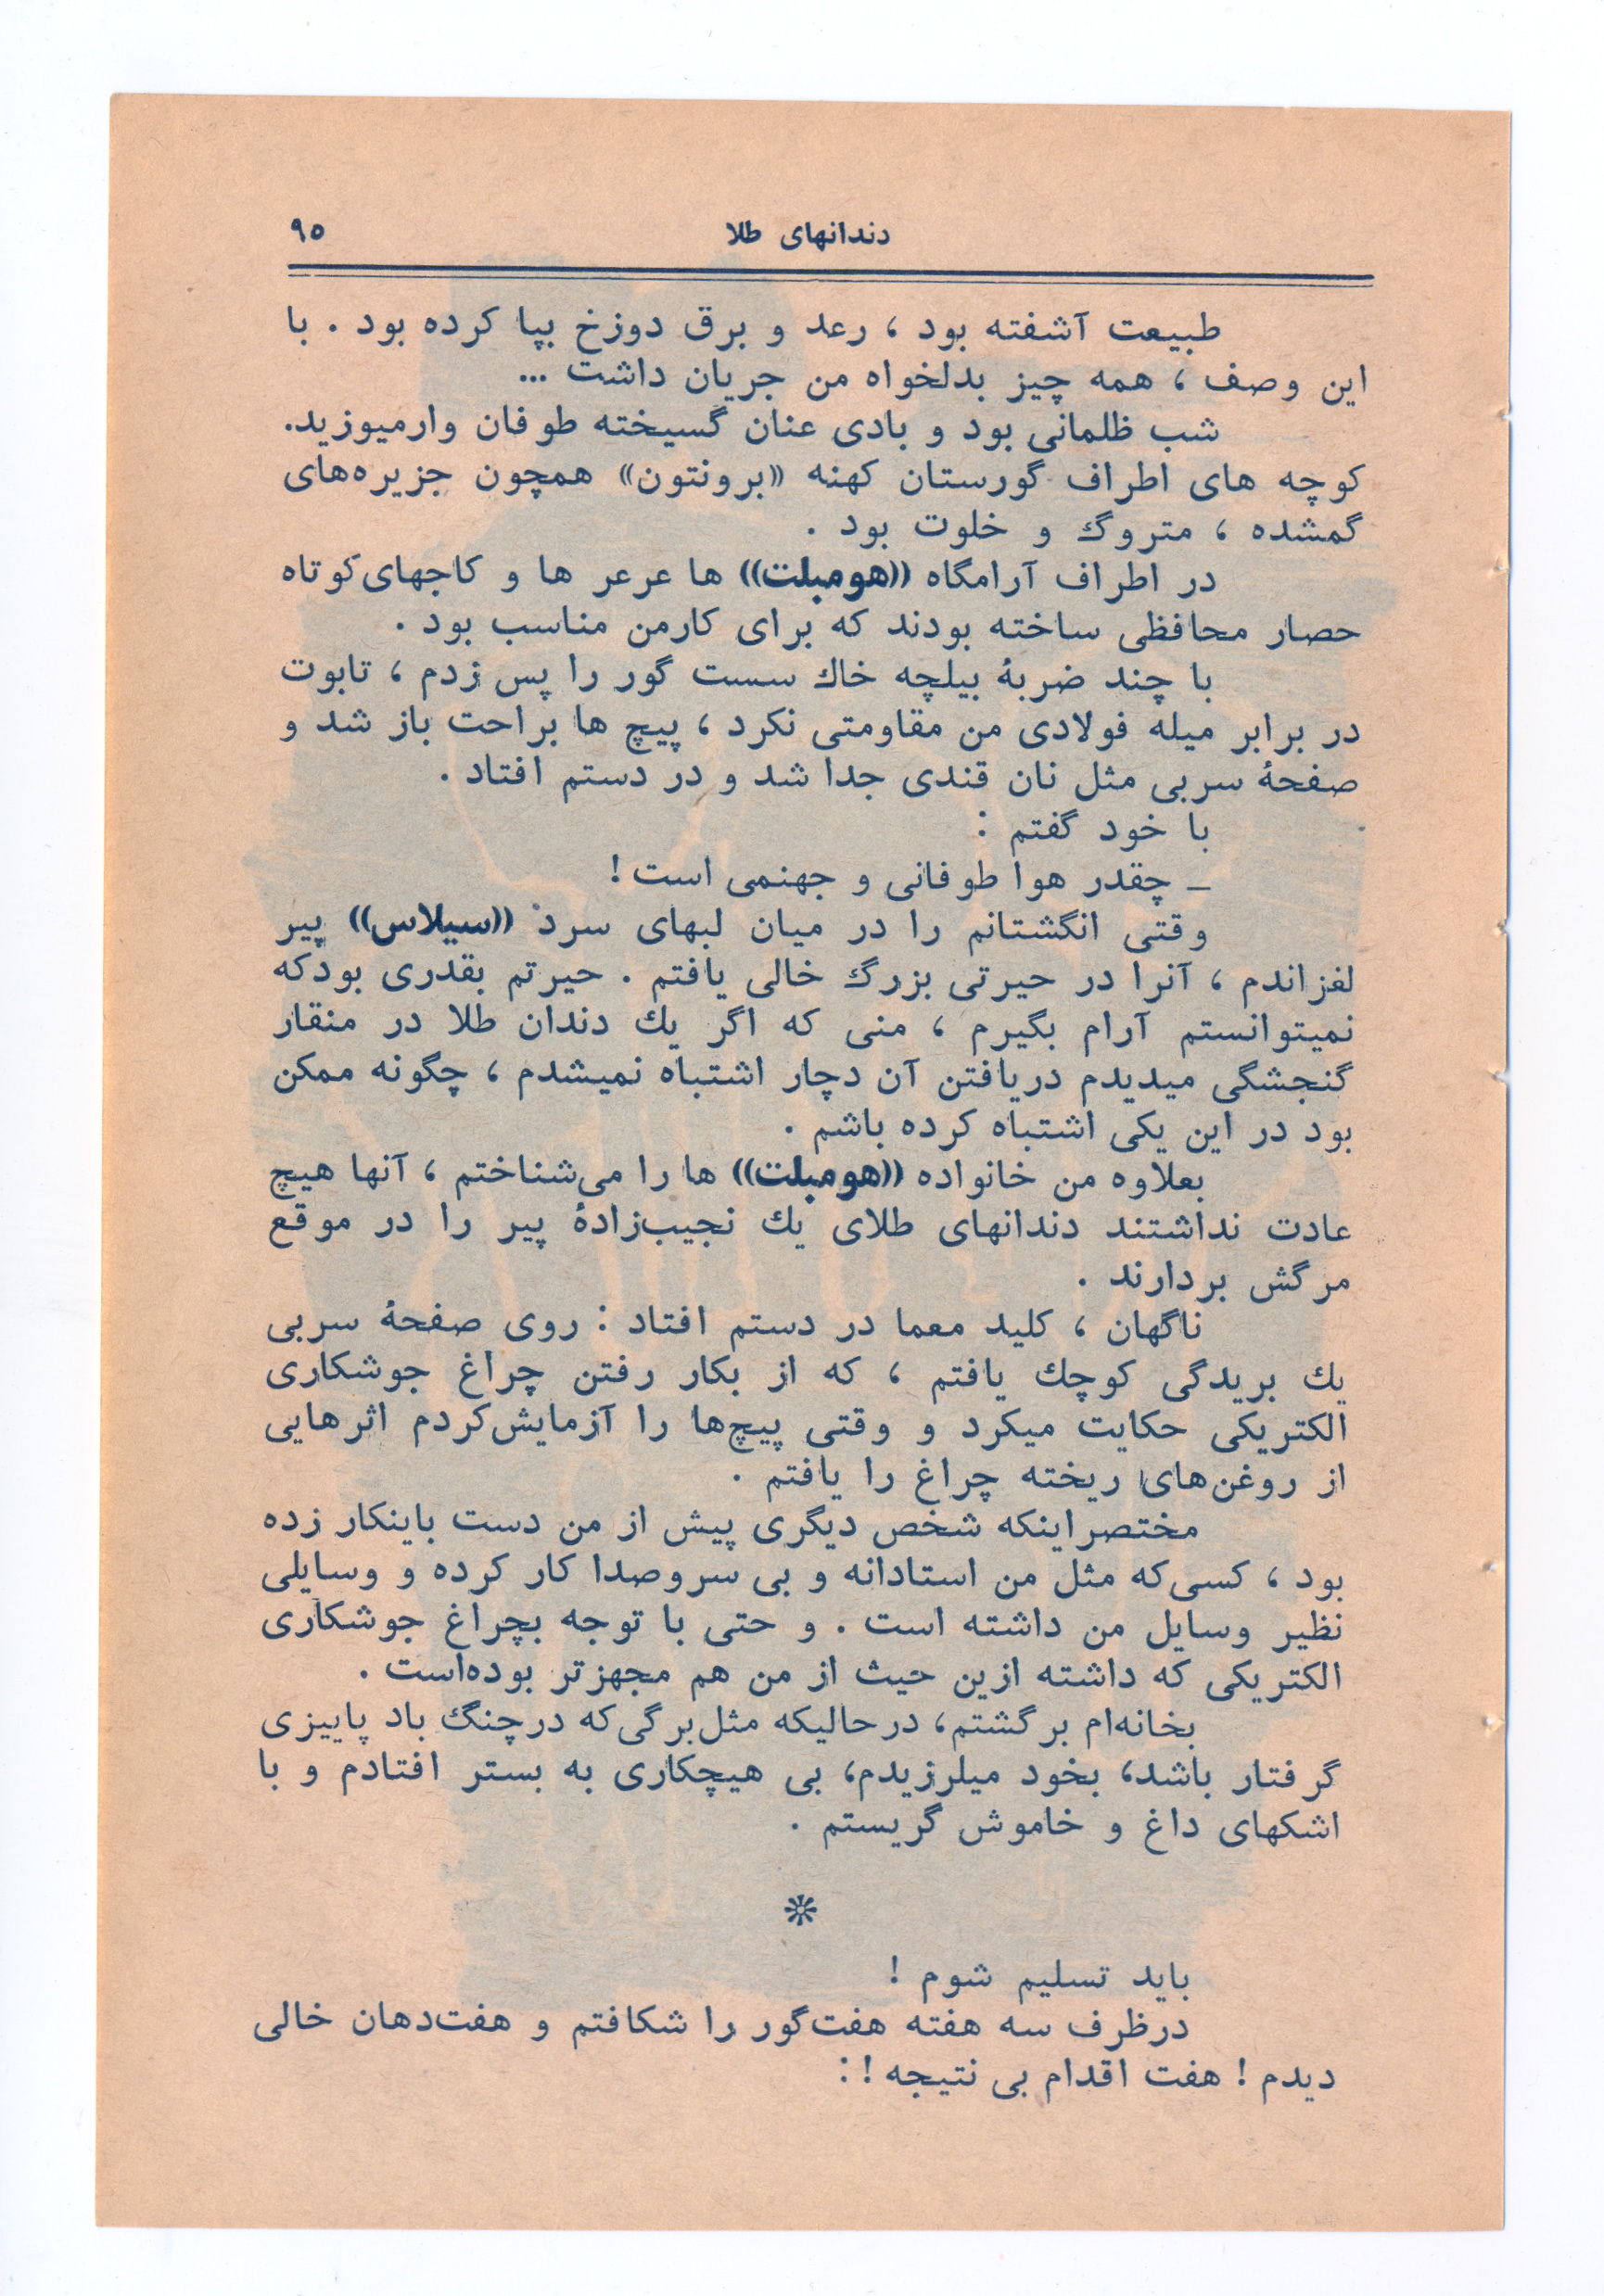 دندانهای طلا ۹۵
طبیعت آشفته بود ، رعد و برق دوزخ بپا کرده بود . با
این وصف ، همه چیز بدلخواه من جریان داشت ...
شب ظلمانی بود و بادی عنان گسیخته طوفان وارمیوزید.
کوچه های اطراف گورستان کهنه «برونتون» همچون جزیره‌های
گمشده ، متروک و خلوت بود .
در اطراف آرامگاه «هومبلت» ها عرعر ها و کاجهای‌کوتاه
حصار محافظی ساخته بودند که برای کارمن مناسب بود .
با چند ضربهٔ بیلچه خاك سست گور را پس زدم ، تابوت
در برابر میله فولادی من مقاومتی نکرد ، پیچ ها براحت باز شد و
صفحهٔ سربی مثل نان قندی جدا شد و در دستم افتاد .
با خود گفتم :
_ چقدر هوا طوفانی و جهنمی است !
وقتی انگشتانم را در میان لبهای سرد «سیلاس» پیر
لغزاندم ، آنرا در حیرتی بزرگ خالی یافتم . حیرتم بقدری بودکه
نمیتوانستم آرام بگیرم ، منی که اگر یك دندان طلا در منقار
گنجشگی میدیدم دریافتن آن دچار اشتباه نمیشدم ، چگونه ممکن
بود در این یکی اشتباه کرده باشم .
بعلاوه من خانواده «هومبلت» ها را می‌شناختم ، آنها هیچ
عادت نداشتند دندانهای طلای یك نجیب‌زادهٔ پیر را در موقع
مرگش بردارند .
ناگهان ، کلید معما در دستم افتاد : روی صفحهٔ سربی
یك بریدگی کوچك یافتم ، که از بکار رفتن چراغ جوشکاری
الکتریکی حکایت میکرد و وقتی پیچ‌ها را آزمایش‌کردم اثرهایی
از روغن‌های ریخته چراغ را یافتم .
مختصراینکه شخص دیگری پیش از من دست باینکار زده
بود ، کسی‌که مثل من استادانه و بی سروصدا کار کرده و وسایلی
نظیر وسایل من داشته است . و حتی با توجه بچراغ جوشکاری
الکتریکی که داشته ازین حیث از من هم مجهزتر بوده‌است .
بخانه‌ام برگشتم، درحالیکه مثل‌برگی‌که درچنگ باد پاییزی
گرفتار باشد، بخود میلرزیدم، بی هیچکاری به بستر افتادم و با
اشکهای داغ و خاموش گریستم .
※
باید تسلیم شوم !
درظرف سه هفته هفت‌گور را شکافتم و هفت‌دهان خالی
دیدم ! هفت اقدام بی نتیجه ! :